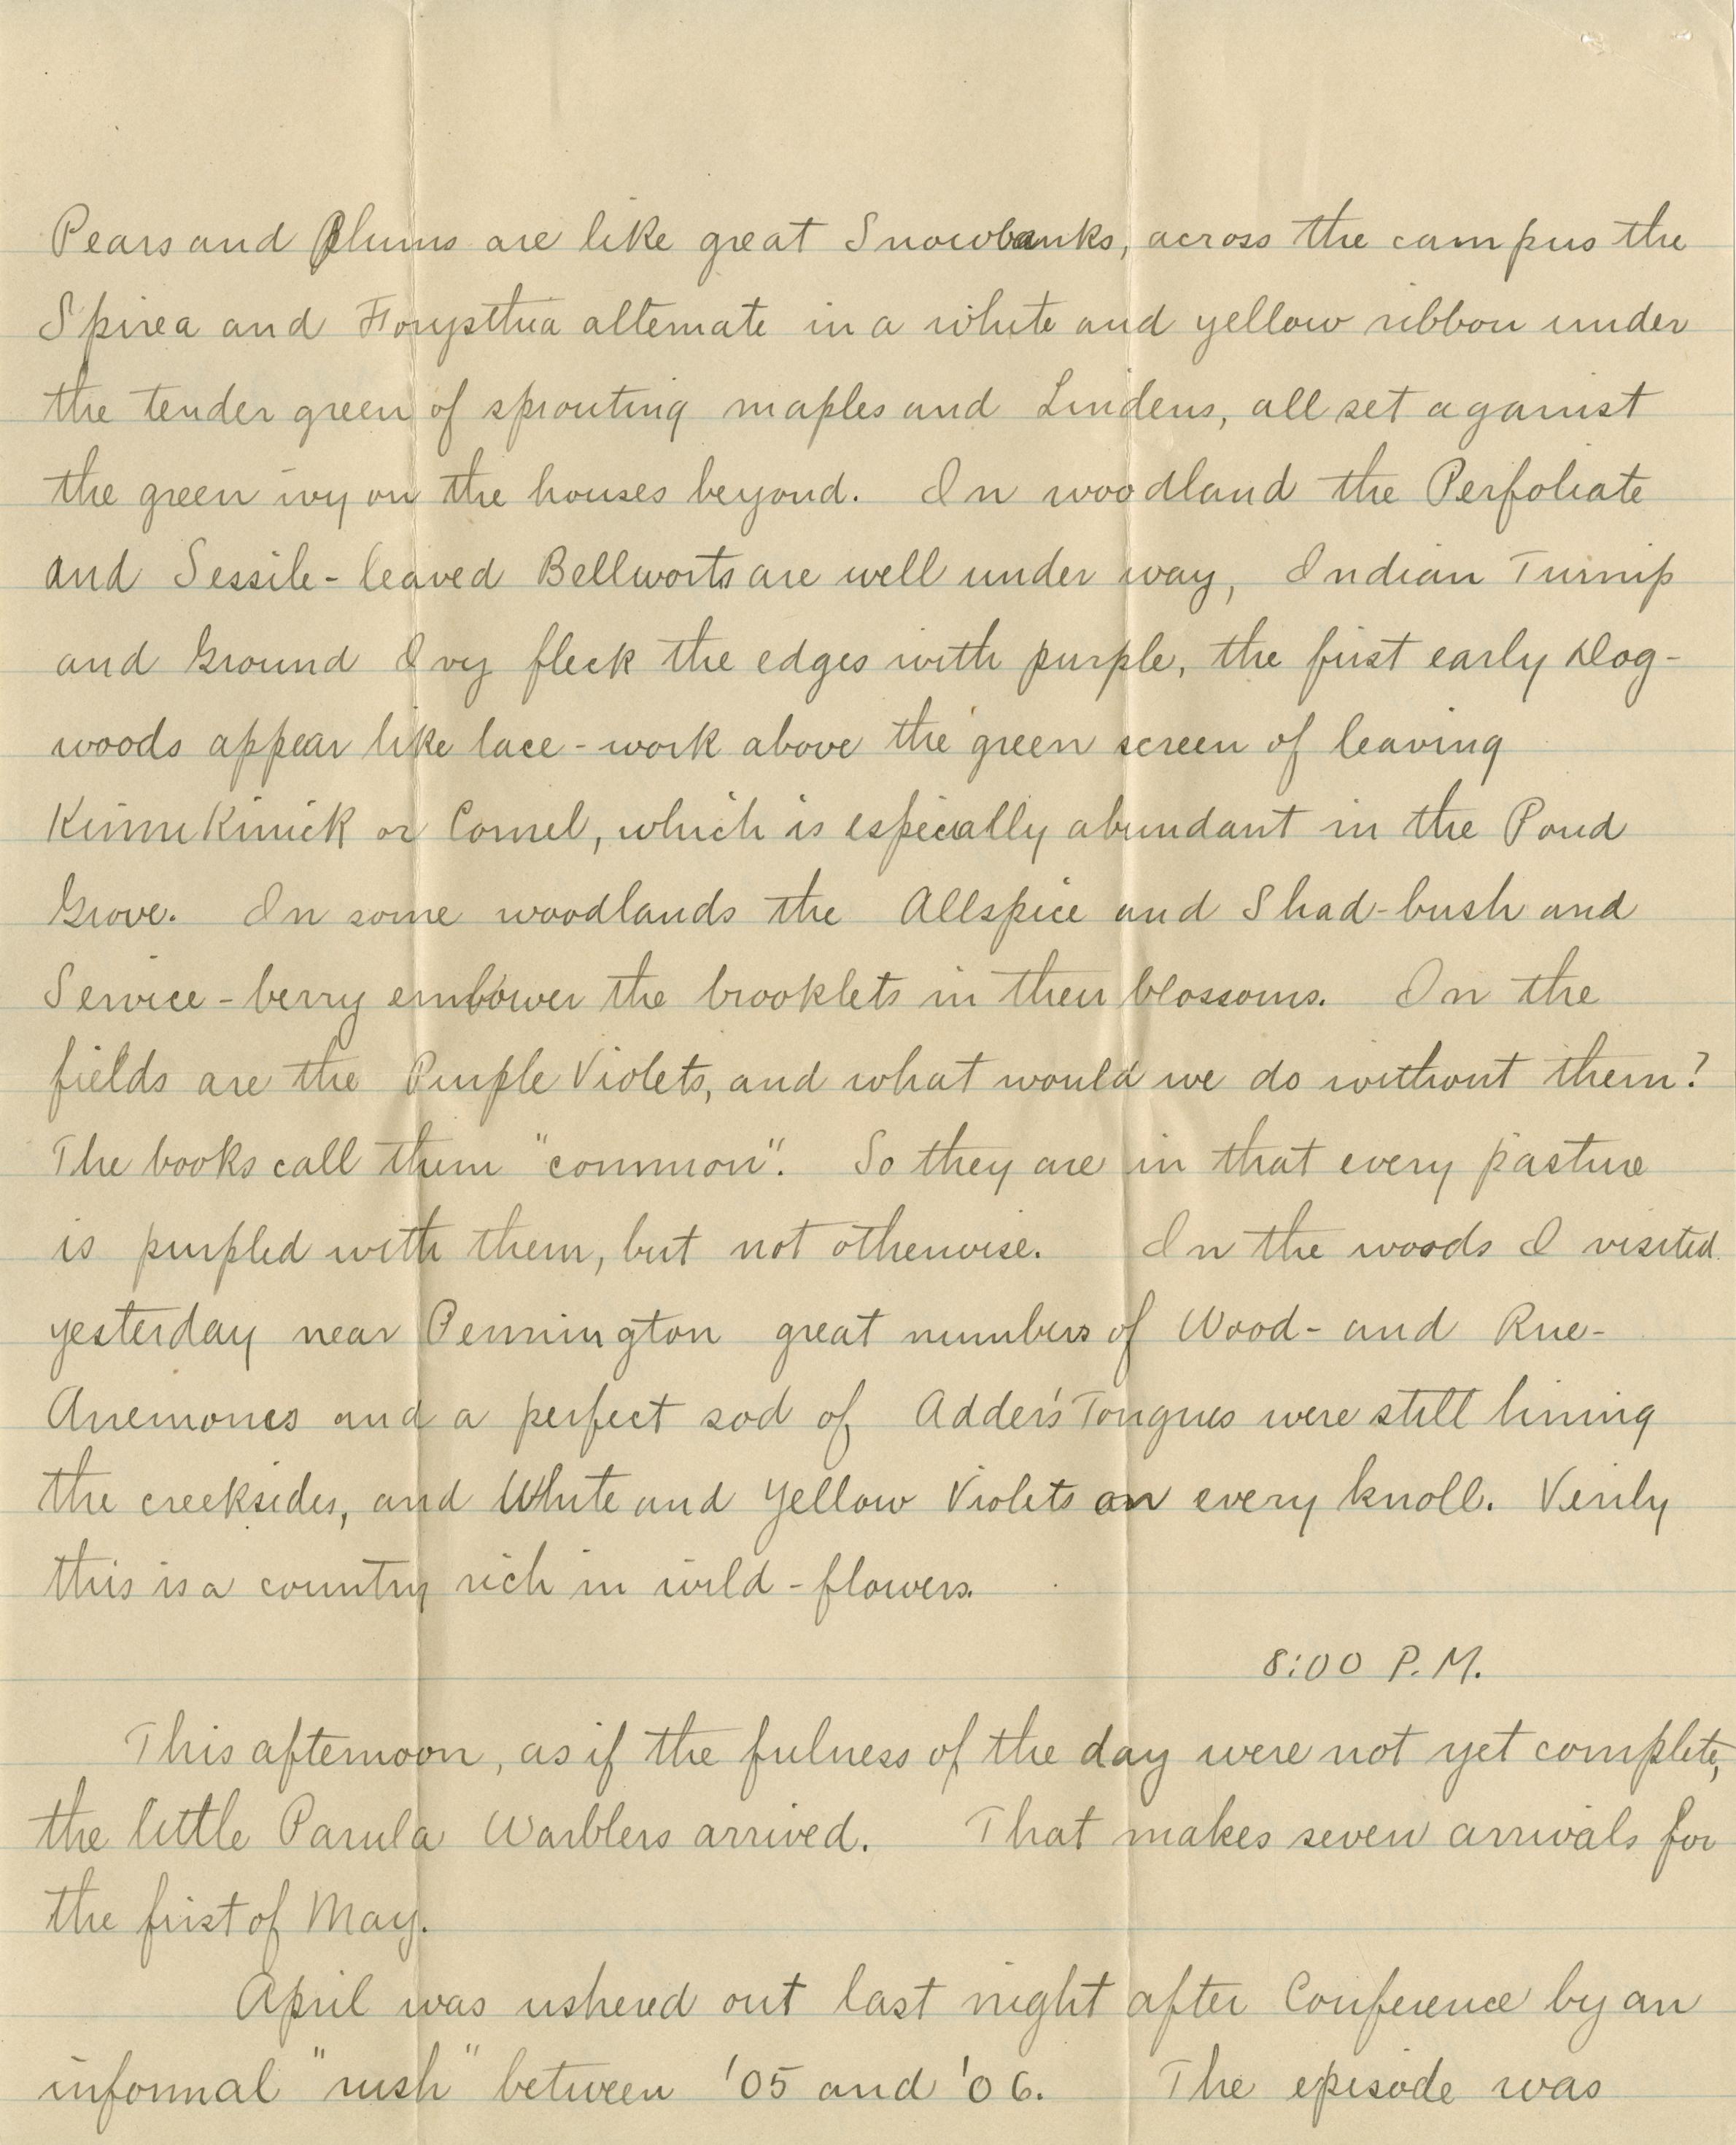 Pears and Plums are like great Snowbanks, across the campus the
Spirea and Forysthia alternate in a white and yellow ribbon under
the tender green of sprouting maples and Lindens, all set against
the green ivy on the houses beyond. In woodland the Perfoliate
and Sessile-leaved Bellworts are well under way, Indian Turnip
and Ground Ivy fleck the edges with purple, the first early Dog-
woods appear like lace-work above the green screen of leaving
Kinni Kinick or Cornel, which is especially abundant in the Pond
Grove. In some woodlands the Allspice and Shad-bush and
Service-berry embower the brooklets in their blossoms. On the
fields are the Purple Violets, and what would we do without them?
The books call them "common". So they are in that every pasture
is purpled with them, but not otherwise. In the woods I visited
yesterday near Pennington great numbers of Wood- and Rue-
Anemones and a perfect sod of Adder's Tongues were still lining
the creeksides, and White and Yellow Violets on every knoll. Verily
this is a country rich in wild-flowers.
8:00 P.M.
This afternoon, as if the fulness of the day were not yet complete,
the little Parula Warblers arrived. That makes seven arrivals for
the first of May.
April was ushered out last night after Conference by an
informal "rush" between '05 and '06. The episode was